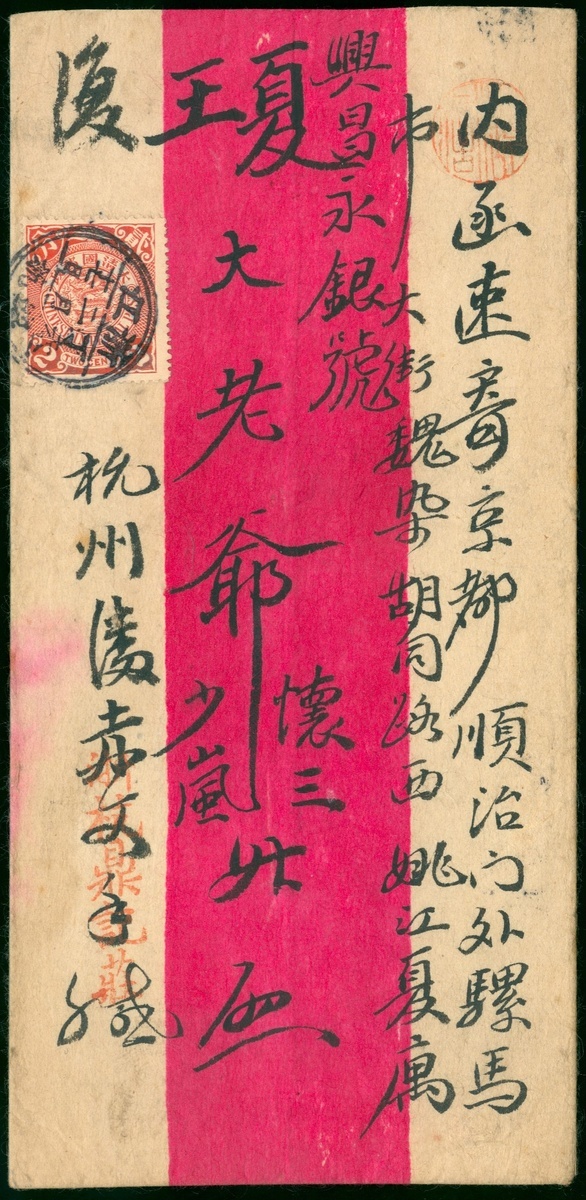 内函速寄京都順治门外騾馬
市大街魏染胡同路西姚江夏寓
興昌永銀號
夏王
大老爺
懷三
少嵐
升啟
復
杭州凌赤文手緘
浙杭鼎記莊
TWO CEN
2